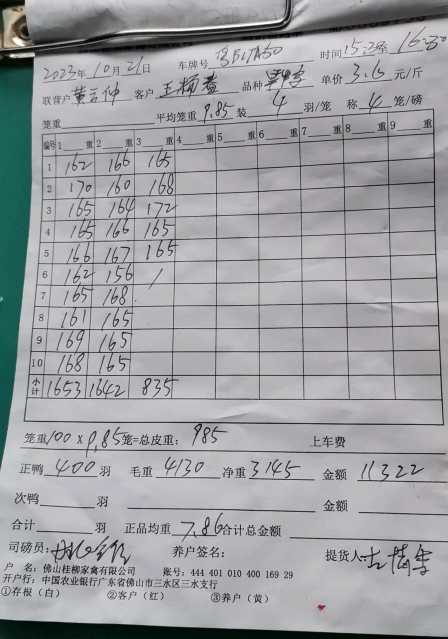 2023年10月21日 车牌号 时间15:25至16:30
联营户 黄云仲 客户 王杨基 品种 单价3.6元/斤
笼重 平均笼重9.85装4羽/笼 称4笼/磅
编号 1 重 2 重 3 重 4 重 5 重 6 重 7 重 8 重 9 重
1 162 166 165
2 170 160 168
3 165 164 172
4 165 166 165
5 166 167 165
6 162 156 /
7 165 168
8 161 165
9 169 165
10 168 165
小计 1653 1642 835
笼重100×9.85笼=总皮重：985 上车费
正鸭400羽 毛重4130 净重3145 金额11322
次鸭 羽 金额
合计 羽 正品均重7.86合计总金额
司磅员： 养户签名： 提货人：
户 名：佛山桂柳家禽有限公司 账号：444 401 010 400 169 29
开户行：中国农业银行广东省佛山市三水区三水支行
①存根（白） ②客户（红） ③养户（黄）